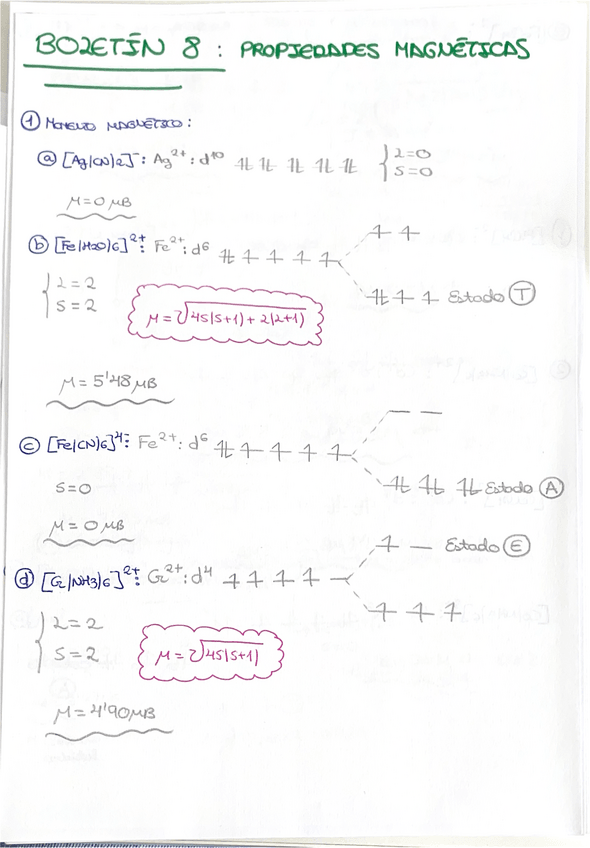 BOLETÍN 8 : PROPIEDADES MAGNÉTICAS
① MOMENTO MAGNÉTICO:
ⓐ [Ag(CN)2]⁻: Ag²⁺: d¹⁰ L=0
S=0
μ=0 μB
ⓑ [Fe(H2O)6]²⁺: Fe²⁺: d⁶
L=2
S=2
μ=√4S(S+1)+L(L+1)
Estado Ⓣ
μ=5'48 μB
ⓒ [Fe(CN)6]⁴⁻: Fe²⁺: d⁶
S=0
Estado Ⓐ
μ=0 μB
Estado Ⓔ
ⓓ [Cr(NH3)6]²⁺: Cr²⁺: d⁴
L=2
S=2
μ=√4S(S+1)
μ=4'90 μB